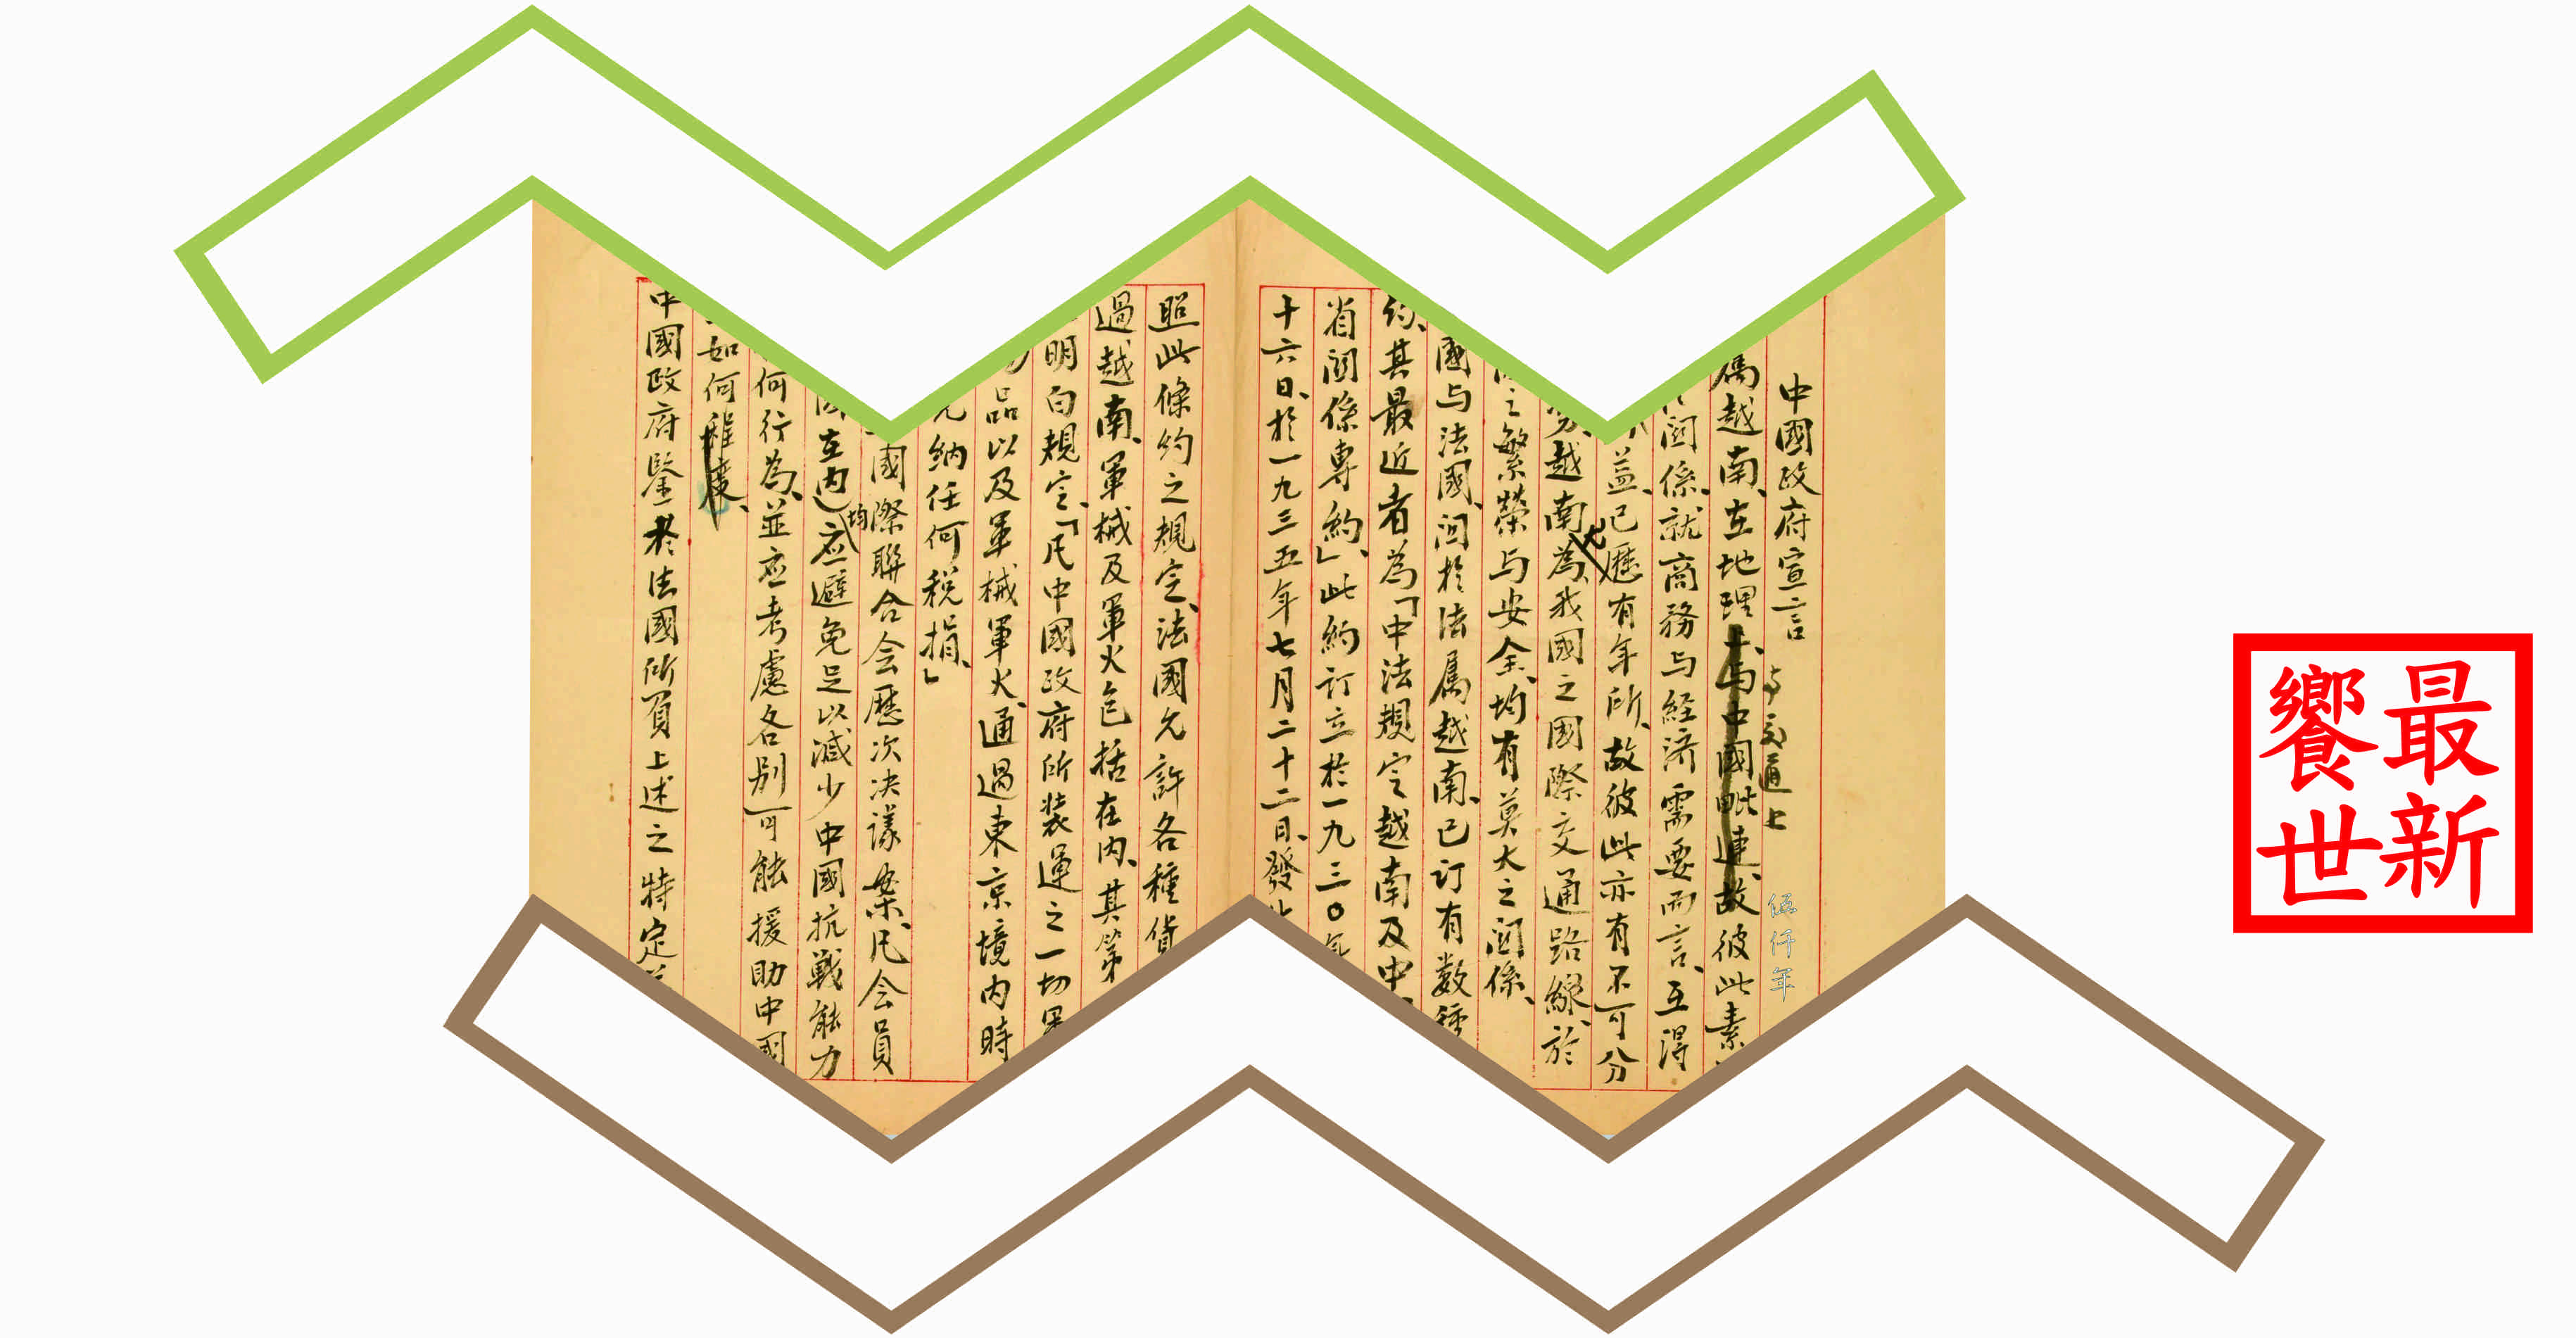 中國政府宣言
与交通上
伍仟年
屬越南、在地理上与中國毗連、故彼此素
関係、就商務与経济需要而言、互得
益、已歷有年所、故彼此亦有不可分
越南為我國之國際交通路線、於
之繁榮与安全、均有莫大之関係、
國与法國、関於法屬越南、已訂有数種
約、其最近者為「中法規定越南及中
省関係專約」、此約訂立於一九三〇年
十六日、於一九三五年七月二十二日、發
照此條約之規定、法國允許各種貨
過越南、軍械及軍火包括在内、其第
明白規定、「凡中國政府所装運之一切軍
品以及軍械軍火、通過東京境内時
納任何税捐、」
國際聯合会歷次決議案、凡会員
在内)均應避免足以減少中國抗戰能力
何行為、並應考慮各別可能援助中國
如何程度、
中國政府鑒於法國所負上述之特定
最新
饗世